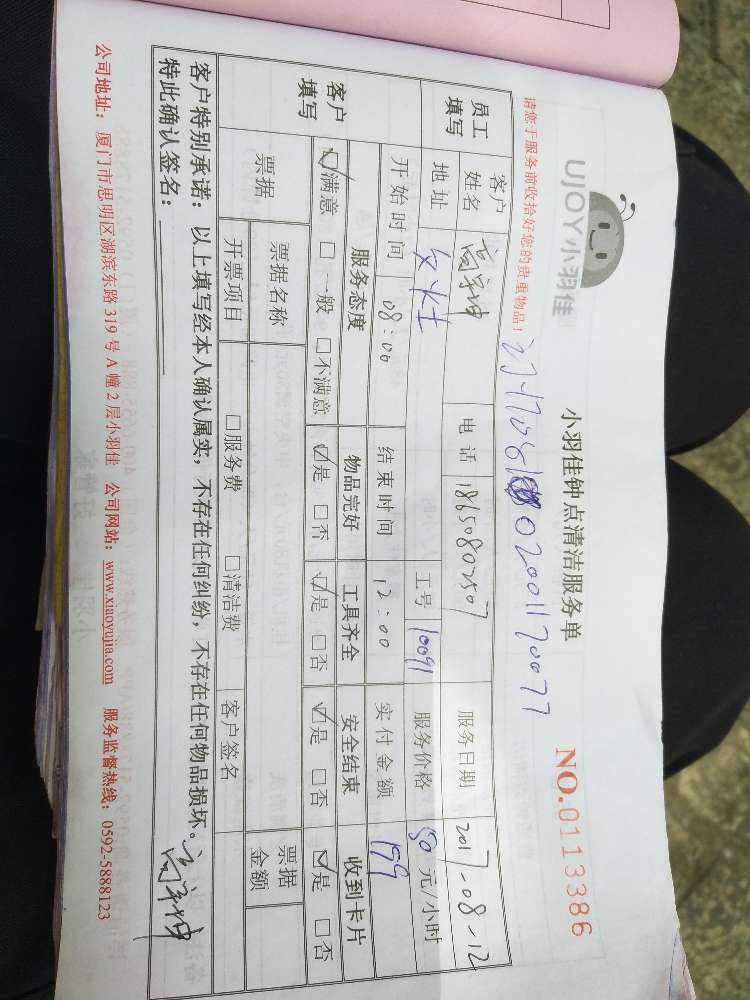 UJOY小羽佳
小羽佳钟点清洁服务单
NO.0113386
请您于服务前收拾好您的贵重物品!
员工填写
客户姓名
电话 18650802507
服务日期 2017-08-12
地址
工号 10091
服务价格 50 元/小时
开始时间 08:00
结束时间 12:00
实付金额 199
客户填写
服务态度 物品完好 工具齐全 安全结束 收到卡片
☑满意 □一般 □不满意 ☑是 □否 ☑是 □否 ☑是 □否 ☑是 □否
票据
票据名称
票据金额
开票项目 □服务费 □清洁费 客户签名
客户特别承诺:以上填写经本人确认属实,不存在任何纠纷,不存在任何物品损坏。
特此确认签名:
公司地址:厦门市思明区湖滨东路 319 号 A 幢 2 层小羽佳 公司网站:www.xiaoyujia.com 服务监督热线:0592-5888123